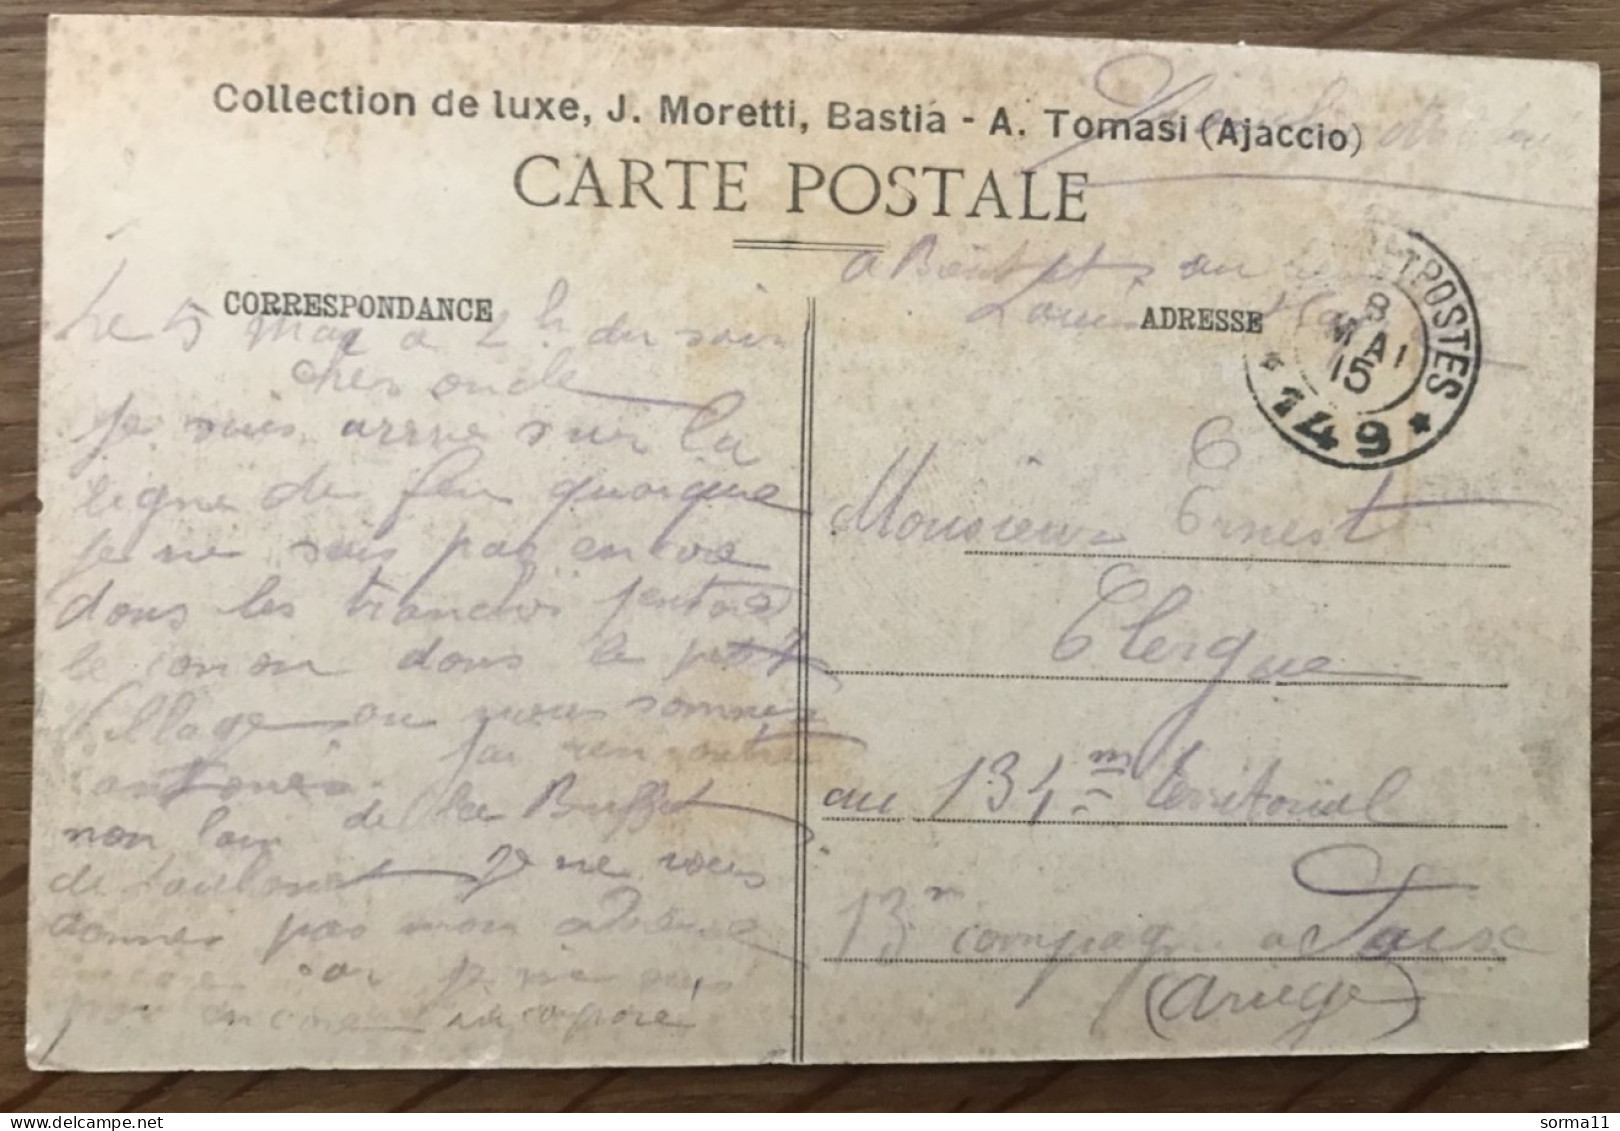 Collection de luxe, J. Moretti, Bastia - A. Tomasi (Ajaccio)
CARTE POSTALE
CORRESPONDANCE
Le 5 Mai a 2h du soir
cher oncle
je suis arrive sur la
ligne de feu quoique
je ne suis pas encore
dans les tranches jentend
le canon dans le petit
Village ou nous sommes
jai rencontre
non loin de la Buffet
de je ne vous
donnes pas mon adresse
encore car je ne suis
pas encore incorporé
a Bientot
Louis
ADRESSE
POSTES
8
MAI
15
* 149 *
Monsieur Ernest
Clergue
au 131me territorial
13me compagnie a
(Ariege)
sorma11